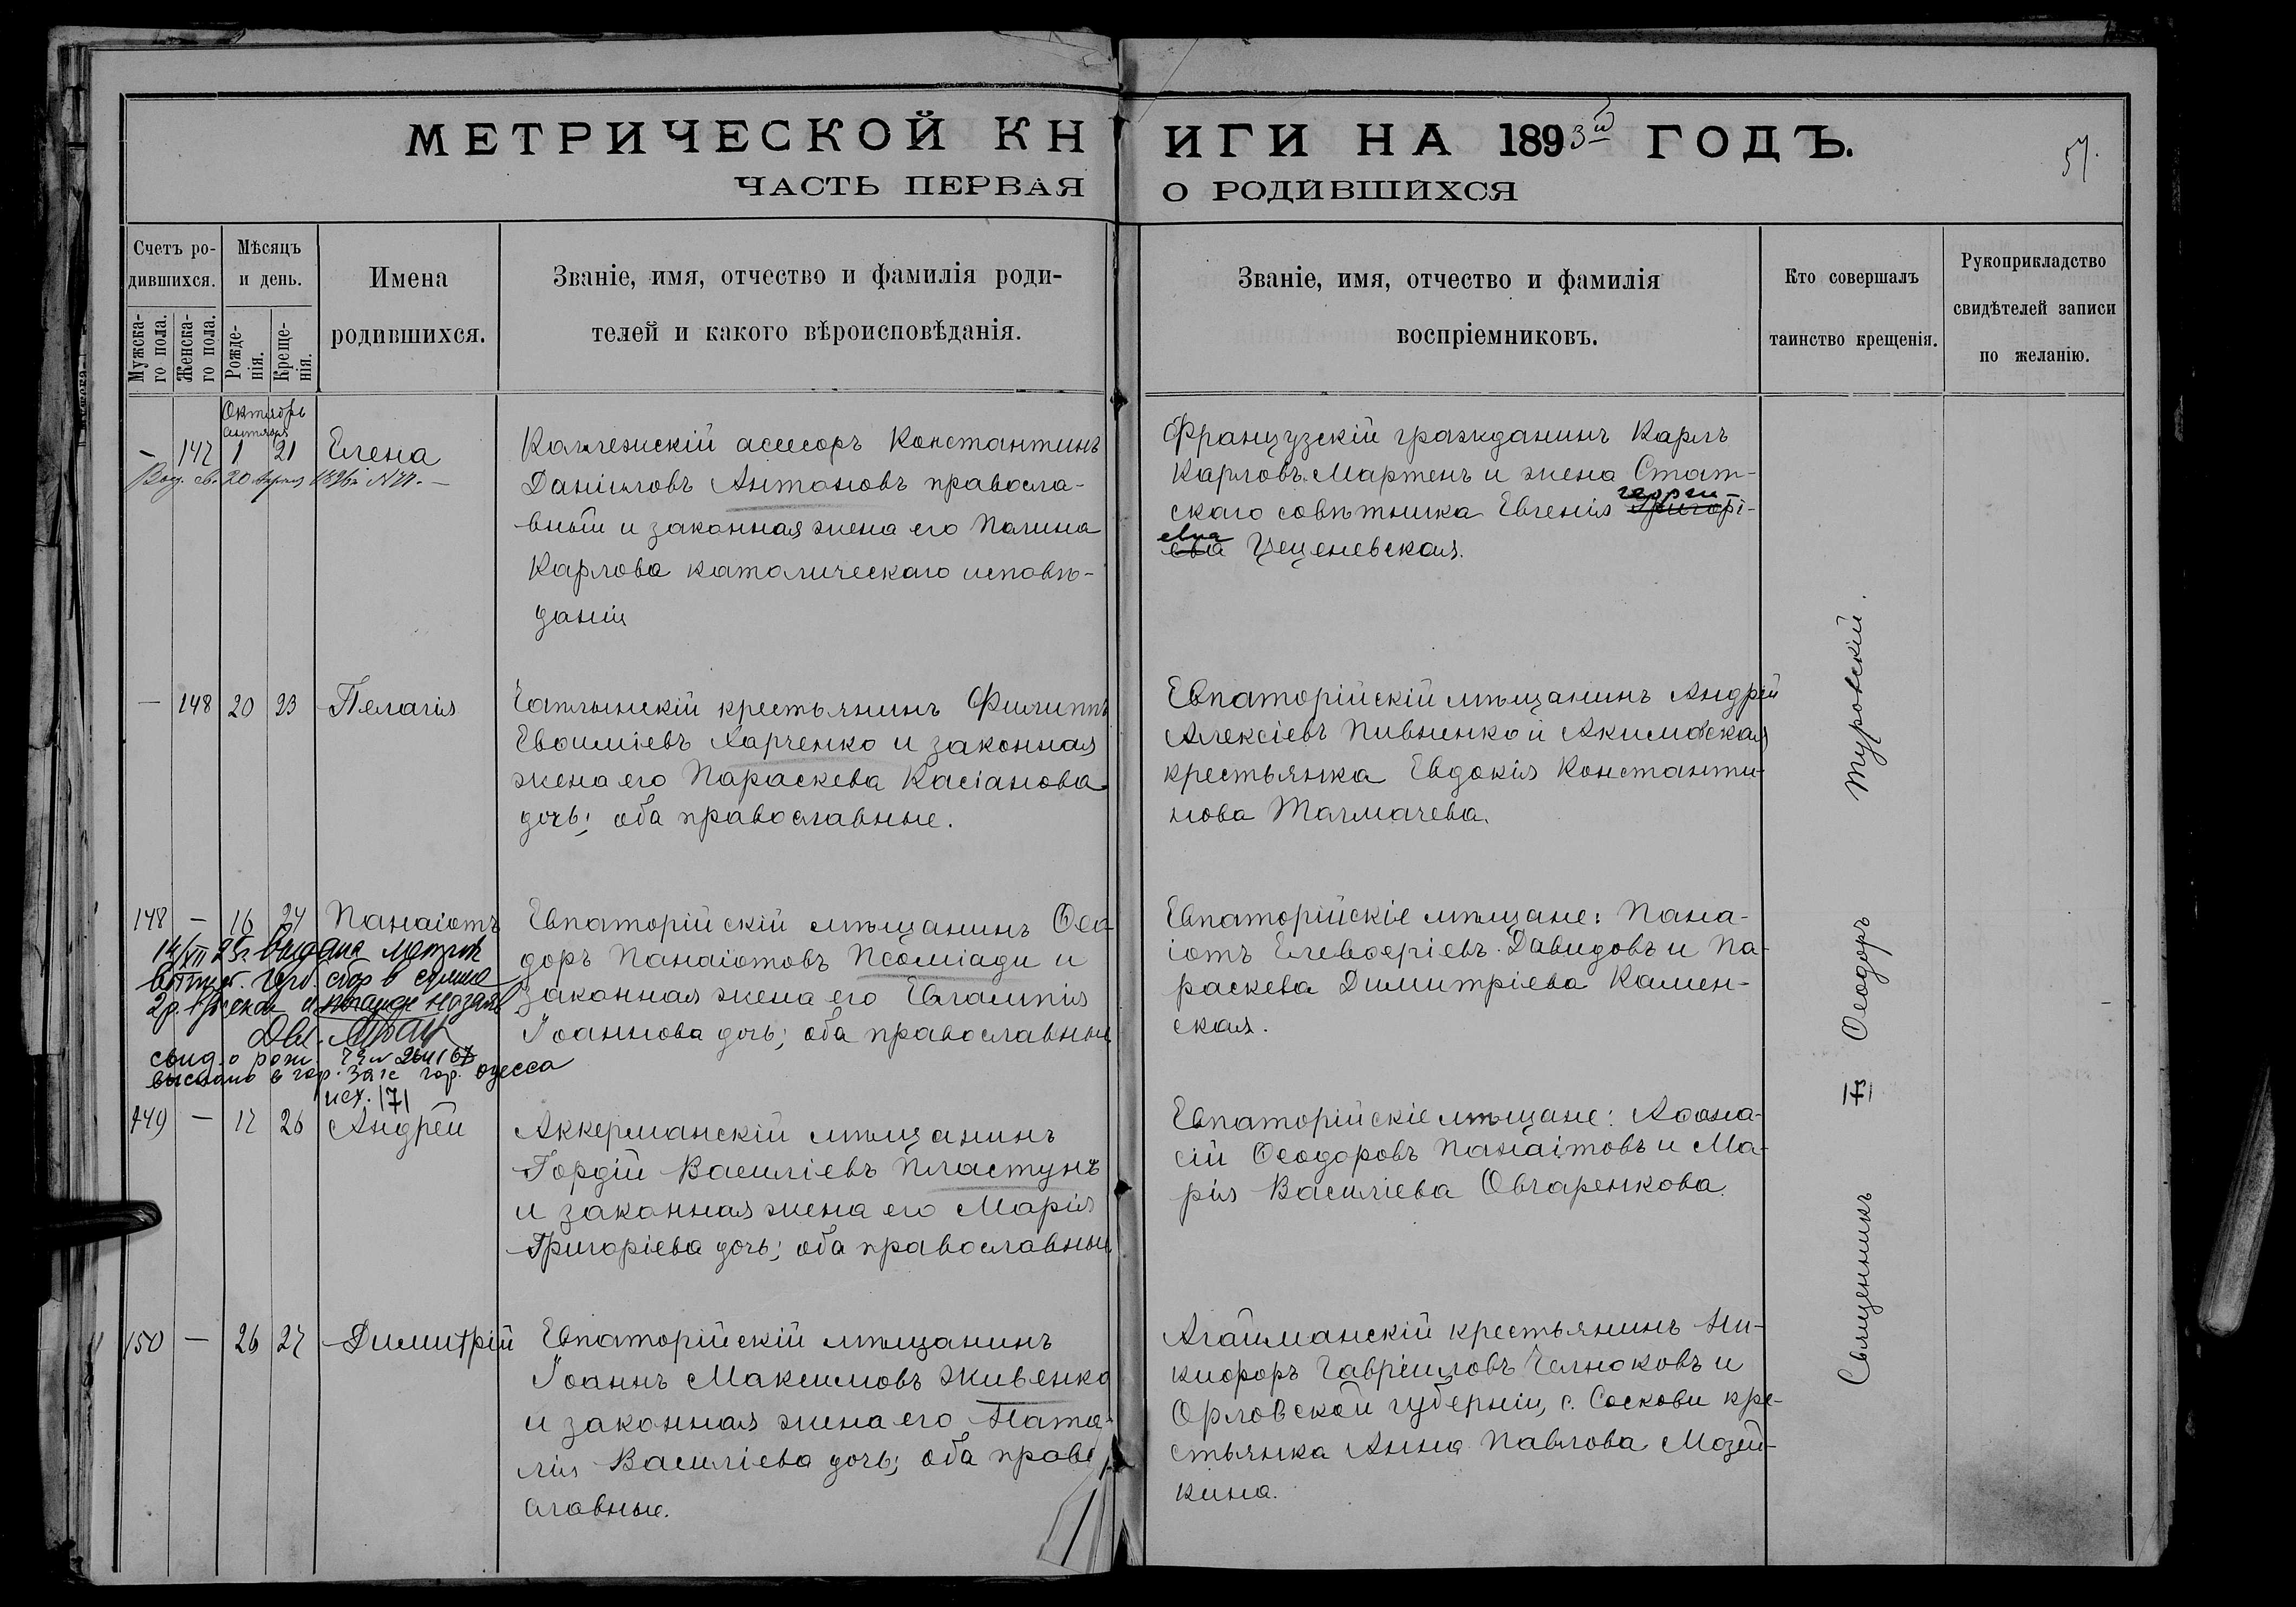 МЕТРИЧЕСКОЙ КНИГИ НА 1893й ГОДЪ.
57.
ЧАСТЬ ПЕРВАЯ О РОДИВШИХСЯ
Счетъ ро-
дившихся.
Мужска-
го пола.
Женска-
го пола.
Мѣсяцъ
и день.
Рожде-
нія.
Креще-
нія.
Имена
родившихся.
Званіе, имя, отчество и фамилія роди-
телей и какого вѣроисповѣданія.
Званіе, имя, отчество и фамилія
воспріемниковъ.
Кто совершалъ
таинство крещенія.
Рукоприкладство
свидѣтелей записи
по желанію.
Октябрь
— 147 1 21 Елена
Коллежскій асессоръ Константинъ
Даніиловъ Антоновъ правосла-
вный и законная жена его Полина
Карлова католическаго исповѣ-
даніи
Французскій гражданинъ Карлъ
Карловъ Мартенъ и жена Стат-
скаго совѣтника Евгенія Георги-
евна Цеценевская.
— 148 20 23 Пелагія
крестьянинъ Филиппъ
Евѳиміевъ Харченко и законная
жена его Параскева Касіанова
дочь; оба православные.
Евпаторійскій мѣщанинъ Андрей
Алексіевъ Пивненко и Акимовская
крестьянка Евдокія Константи-
нова Толмачева.
148 — 16 24 Панаіотъ
14/VII 25г. выдана
свид. о рож.
выслано в гор. Загс гор. Одесса
исх. 171
Евпаторійскій мѣщанинъ Ѳео-
доръ Панаіотовъ Псоміади и
законная жена его Евлампія
Іоаннова дочь; оба православные
Евпаторійскіе мѣщане: Пана-
іотъ Елевѳеріевъ Давидовъ и Па-
раскева Димитріева Камен-
ская.
149 — 17 26 Андрей
Аккерманскій мѣщанинъ
Гордій Василіевъ Пластунъ
и законная жена его Марія
Григоріева дочь; оба православные
Евпаторійскіе мѣщане: Аѳана-
сій Ѳеодоровъ Панаітовъ и Ма-
рія Василіева Овчаренкова.
150 — 26 27 Димитрій
Евпаторійскій мѣщанинъ
Іоаннъ Максимовъ Живенко
и законная жена его Ната-
лія Василіева дочь; оба право
славные.
Агайманскій крестьянинъ Ни-
кифоръ Гавріиловъ Челноковъ и
Орловской губерніи, с. Соскови кре-
стьянка Анна Павлова Мозей-
кина.
Священникъ Ѳеодоръ Туровскій.
171